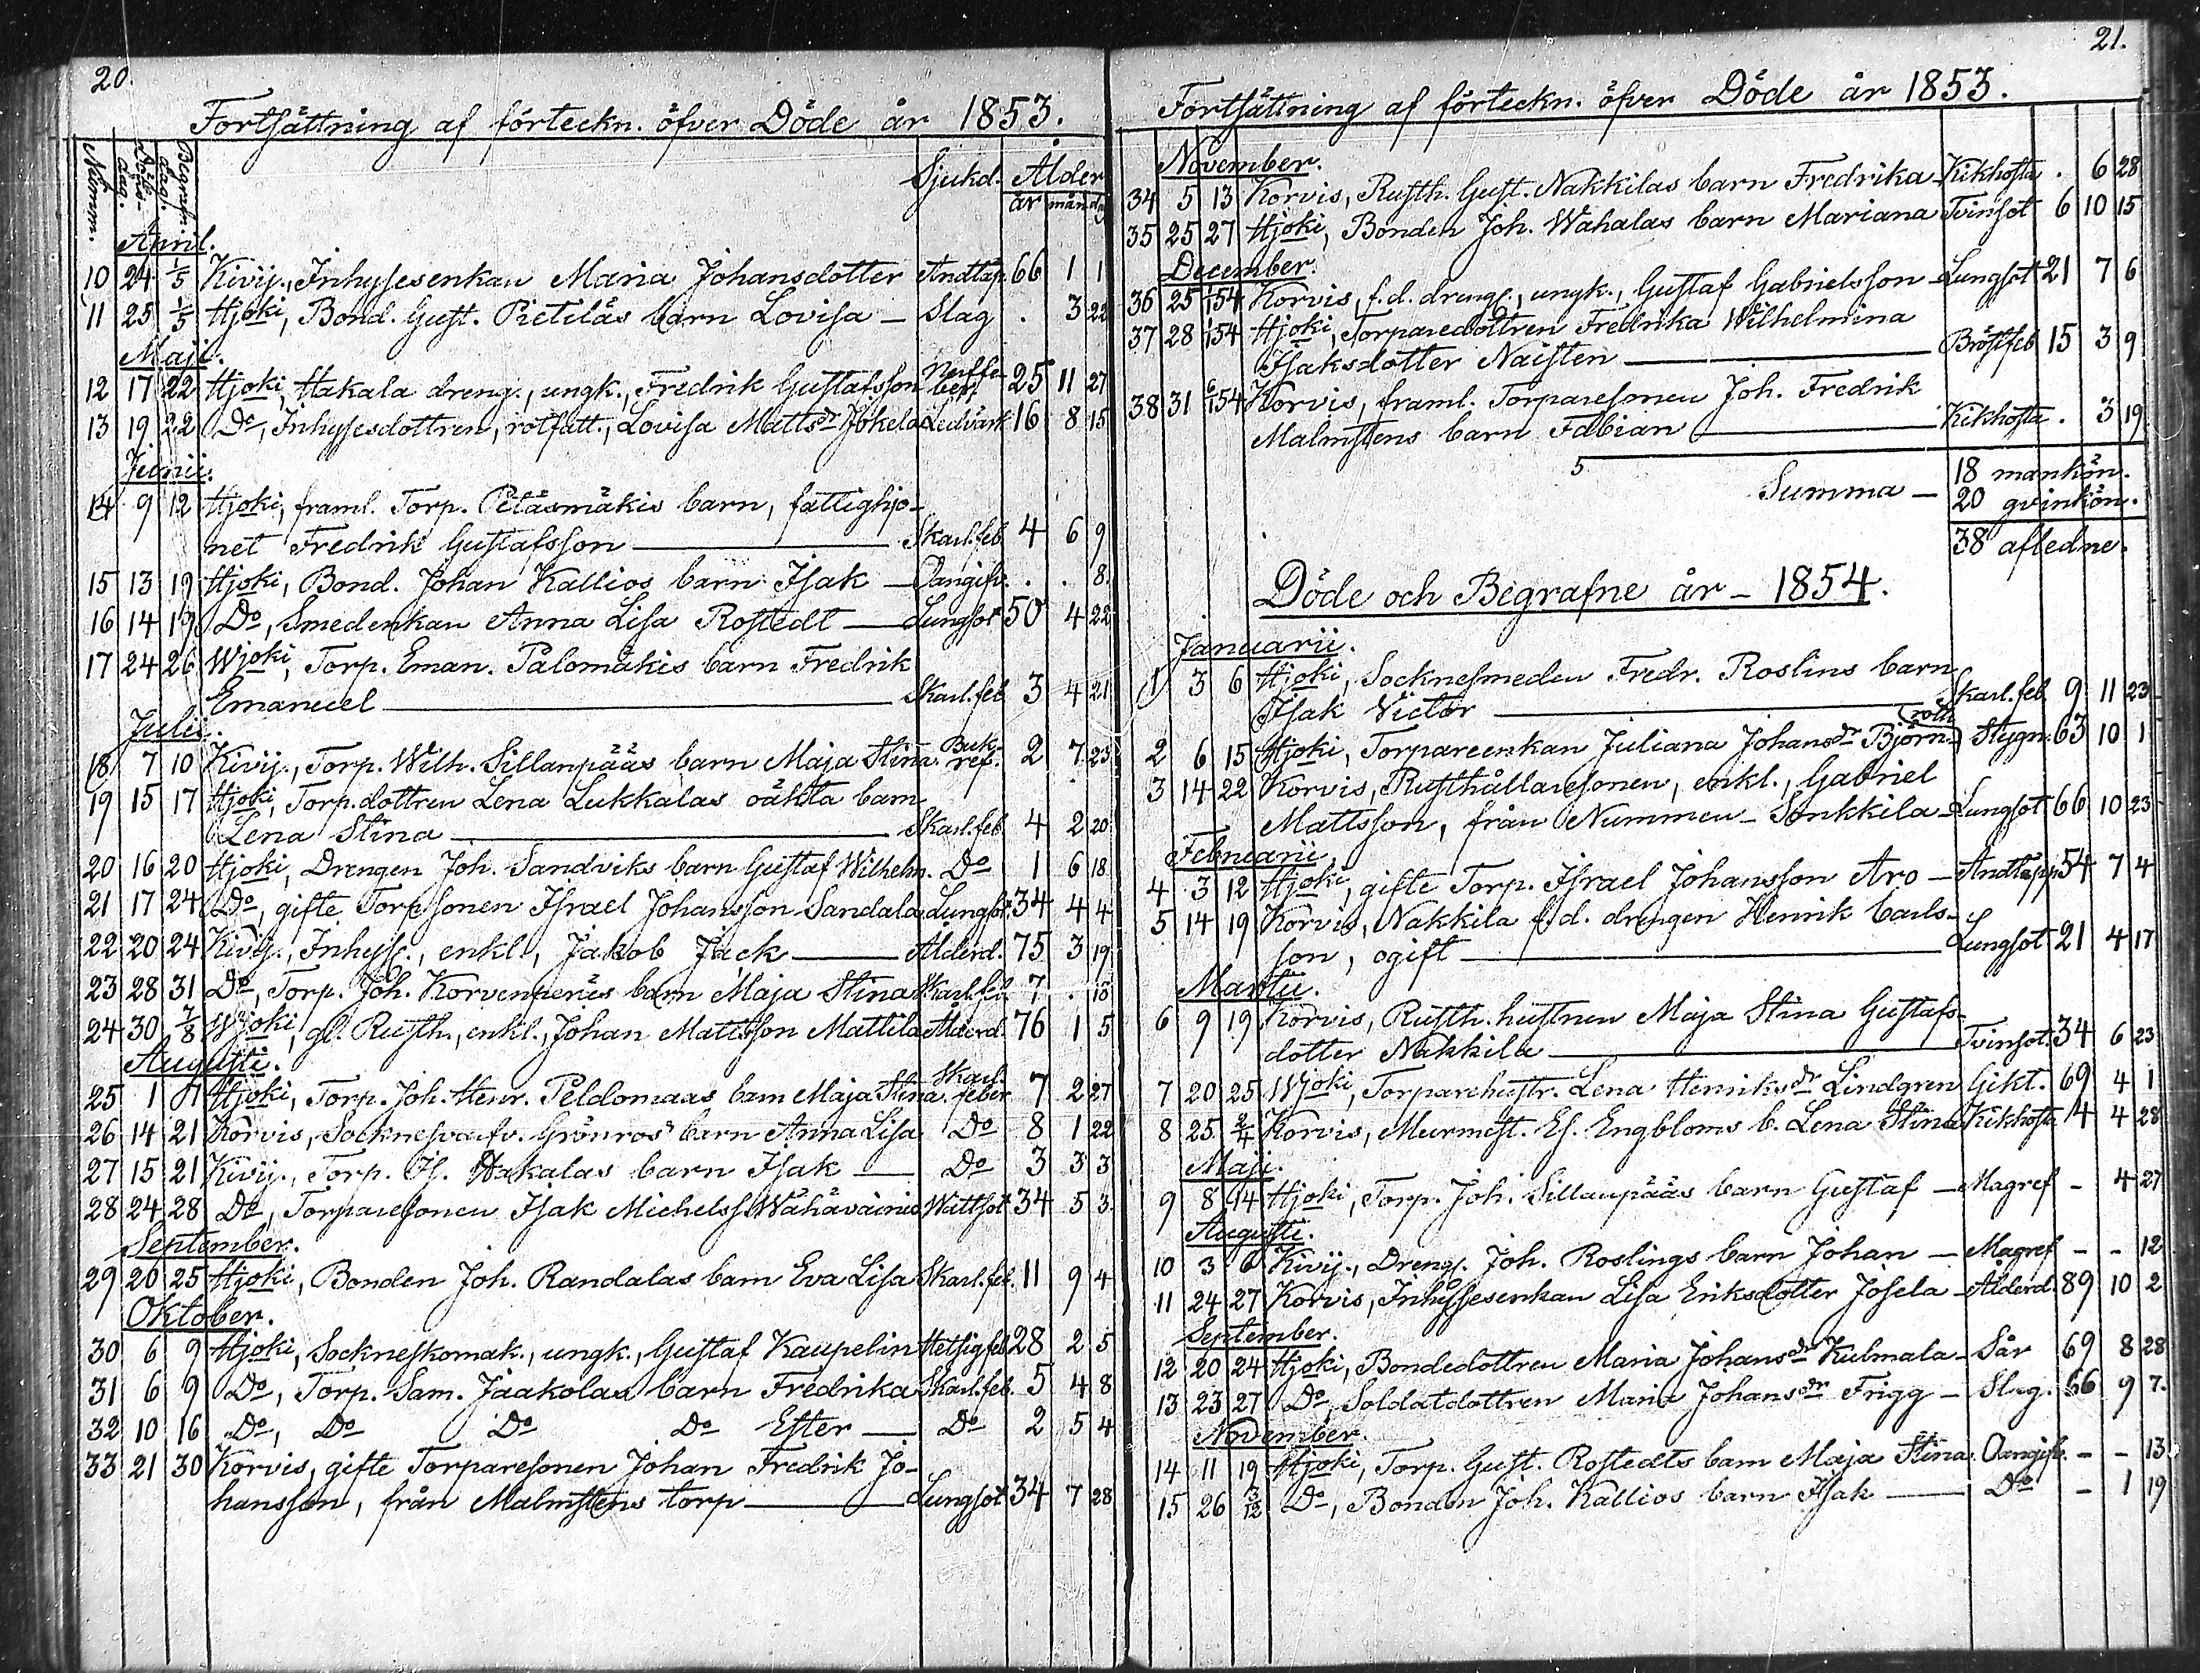 20.
Fortsättning af förteckn. öfver Döde år 1853.
Numm. Döds-dag. Begrafn. dag. Sjukd. Ålder
år mån. dag
April.
10 24 1/5 Kivij., Inhysesenkan Maria Johansdotter Andtäp. 66 1 1
11 25 1/5 Hjoki, Bond. Gust. Pietiläs barn Lovisa — Slag . 3 22
Maji.
12 17 22 Hjoki, Hakala dreng., ungk., Fredrik Gustafsson 25 11 27
13 19 22 Do, Inhysesdottren, rotfatt., Lovisa Mattsdr Jokela Ledvärk 16 8 15
Junii.
14 9 12 Hjoki, framl. Torp. Petäsmäkis barn, fattighjo-
net Fredrik Gustafsson — Skarl.feb. 4 6 9
15 13 19 Hjoki, Bond. Johan Kallios barn Isak — Oangifv. . . 8.
16 14 19 Do, Smedenkan Anna Lisa Rostedt — Lungsot 50 4 22
17 24 26 Wjoki, Torp. Eman. Palomäkis barn Fredrik
Emanuel — Skarl.feb. 3 4 21
Julii.
18 7 10 Kivij., Torp. Wilh. Sillanpääs barn Maja Stina Bukref. 2 7 23
19 15 17 Hjoki, Torp.dottren Lena Lukkalas oäkta barn
Lena Stina — Skarl.feb. 4 2 20
20 16 20 Hjoki, Drengen Joh. Sandviks barn Gustaf Wilhelm. Do 1 6 18
21 17 24 Do, gifte Torpsonen Israel Johansson Sandala Lungsot. 34 4 4
22 20 24 Kivij., Inhyss., enkl., Jakob Jäck — Ålderd. 75 3 19
23 28 31 Do, Torp. Joh. Korvenperäs barn Maja Stina Skarl.feb. 7 . 18
24 30 7/8 Wjoki, gl. Rusth., enkl., Johan Mattsson Mattila Ålderd. 76 1 5
Augusti.
25 1 7 Hjoki, Torp. Joh. Henr. Peldomaas barn Maja Stina Skarl.feber 7 2 27
26 14 21 Korvis, Sockneskräddv. Grönros' barn Anna Lisa Do 8 1 22
27 15 21 Kivij., Torp. Is. Hakalas barn Isak — Do 3 3 3
28 24 28 Do, Torparesonen Isak Michelss. Wähäväinio Wattsot 34 5 3.
September.
29 20 25 Hjoki, Bonden Joh. Randalas barn Eva Lisa Skarl.feb. 11 9 4
Oktober.
30 6 9 Hjoki, Sockneskomak., ungk., Gustaf Kaupelin Hetsig feb. 28 2 5
31 6 9 Do, Torp. Sam. Jaakolas barn Fredrika Skarl.feb. 5 4 8
32 10 16 Do, Do Do Do Ester — Do 2 5 4
33 21 30 Korvis, gifte Torparesonen Johan Fredrik Jo-
hansson, från Malmstens torp — Lungsot 34 7 28
21.
Fortsättning af förteckn. öfver Döde år 1853.
November.
34 5 13 Korvis, Rusth. Gust. Nakkilas barn Fredrika Kikhosta . 6 28
35 25 27 Hjoki, Bonden Joh. Wahalas barn Mariana Tvinsot 6 10 15
December.
36 25 1/54 Korvis, f.d. drengs., ungk., Gustaf Gabrielsson Lungsot 21 7 6
37 28 1/54 Hjoki, Torparedottren Fredrika Wilhelmina
Isaksdotter Naisten — Bröstfeb 15 3 9
38 31 6/54 Korvis, framl. Torparesonen Joh. Fredrik
Malmstens barn Fabian — Kikhosta . 3 19
5
Summa — 18 mankön.
20 qvinkön.
38 aflidne.
Döde och Begrafne år — 1854.
Januarii.
1 3 6 Hjoki, Socknesmeden Fredr. Roslins barn
Isak Victor — Skarl.feb. 9 11 23
2 6 15 Hjoki, Torpareenkan Juliana Johansdr Björnroth Stygn. 63 10 1
3 14 22 Korvis, Rusthållaresonen, enkl., Gabriel
Mattsson, från Nummen-Sonkkila Lungsot 66 10 23
Februarii.
4 3 12 Hjoki, gifte Torp. Israel Johansson Aro — Andtäpp. 54 7 4
5 14 19 Korvis, Nakkila f.d. drengen Henrik Carls-
son, ogift — Lungsot 21 4 17
Martii.
6 9 19 Korvis, Rusth.hustrun Maja Stina Gustafs-
dotter Nakkila — Tvinsot. 34 6 23
7 20 25 Wjoki, Torparehustr. Lena Henriksdr Lindgren Gikt. 69 4 1
8 25 2/4 Korvis, Murmäst. Es. Engbloms b. Lena Stina Kikhosta 4 4 28
Maji.
9 8 14 Hjoki, Torp. Joh. Sillanpääs barn Gustaf — Magref - 4 27
Augusti.
10 3 6 Kivij., Drengs. Joh. Roslings barn Johan — Magref - - 12
11 24 27 Korvis, Inhysesenkan Lisa Eriksdotter Josela — Ålderd. 89 10 2
September.
12 20 24 Hjoki, Bondedottren Maria Johansdr Kulmala — Sår 69 8 28
13 23 27 Do, Soldatdottren Maria Johansdr Frigg — Slag. 66 9 7.
November.
14 11 19 Hjoki, Torp. Gust. Rostedts barn Maja Stina. Oangifv. - - 13
15 26 3/12 Do, Bonden Joh. Kallios barn Isak — Do - 1 19